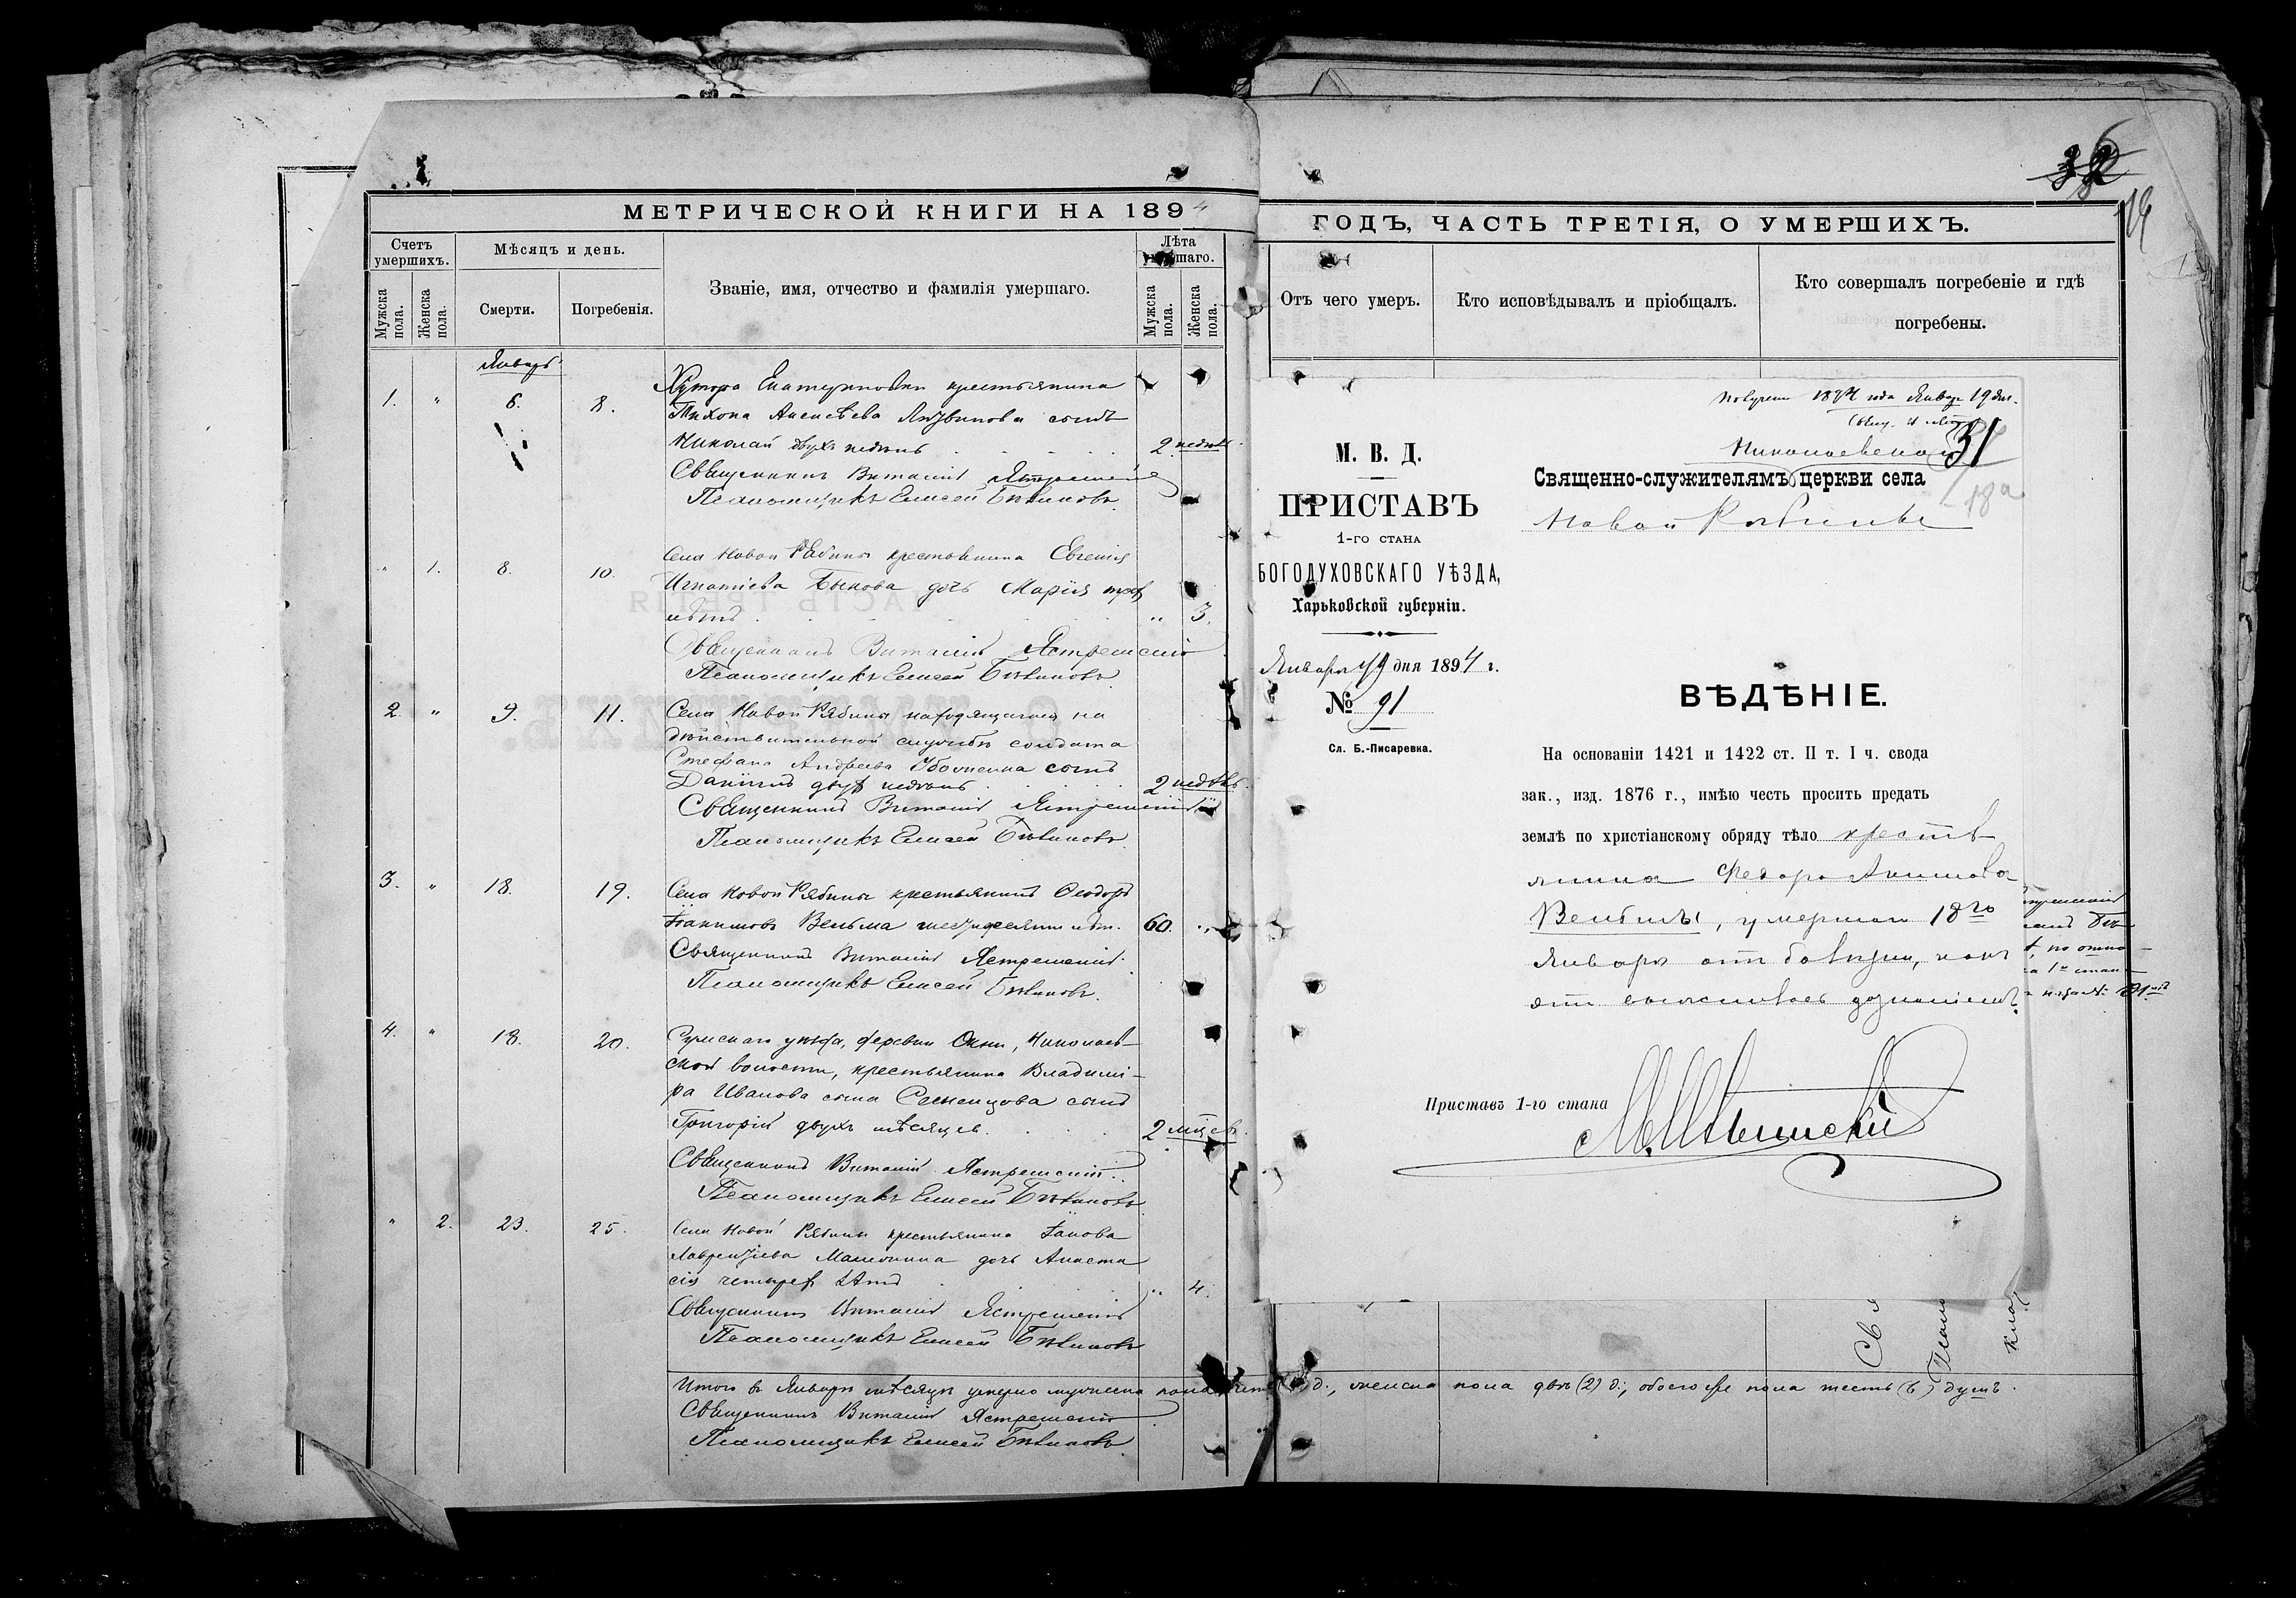 МЕТРИЧЕСКОЙ КНИГИ НА 1894
Счетъ умершихъ.
Мѣсяцъ и день.
Званіе, имя, отчество и фамилія умершаго.
Лѣта умершаго.
Мужска пола.
Женска пола.
Смерти.
Погребенія.
Мужска пола.
Женска пола.
Январь
1. " 6. 8.
Хутора Екатериновки крестьянина
Тихона Алексѣева сынъ
Николай двухъ недѣль 2 недѣл.
Священникъ Виталій Ястремскій
Псаломщикъ Елисей
" 1. 8. 10.
Села Новой Рябины крестьянина Евгенія
Игнатіева Быкова дочь Марія трехъ
лѣтъ " 3.
Священникъ Виталій Ястремскій
Псаломщикъ Елисей
2. " 9. 11.
Села Новой Рябины находящагося на
дѣйствительной службѣ солдата
Стефана Андреева сынъ
Даніилъ двухъ недѣль 2 недѣл.
Священникъ Виталій Ястремскій
Псаломщикъ Елисей
3. " 18. 19.
Села Новой Рябины крестьянинъ Ѳеодоръ
Іоакимовъ Вельма шестидесяти лѣт. 60. "
Священникъ Виталій Ястремскій
Псаломщикъ Елисей
4. " 18. 20.
Сумскаго уѣзда, деревни Окни, Николаев-
ской волости, крестьянина Владимі-
ра Иванова сына Семенцова сынъ
Григорій двухъ мѣсяцев. 2 мѣсев.
Священникъ Виталій Ястремскій
Псаломщикъ Елисей
" 2. 23. 25.
Села Новой Рябины крестьянина Іакова
Лаврентіева дочь Анаста
сія четырех лѣтъ " 4.
Священникъ Виталій Ястремскій
Псаломщикъ Елисей
Итого въ Январѣ мѣсяцѣ умерло мужеска пола д., женска пола двѣ (2) д., обоего же пола шесть (6) душъ.
Священникъ Виталій Ястремскій
Псаломщикъ Елисей
ГОДЪ, ЧАСТЬ ТРЕТІЯ, О УМЕРШИХЪ.
Отъ чего умеръ.
Кто исповѣдывалъ и пріобщалъ.
Кто совершалъ погребеніе и гдѣ
погребены.
Получено 1894 года Январ 19 дн.
31
18а
М. В. Д.
ПРИСТАВЪ
1-го стана
БОГОДУХОВСКАГО УѢЗДА,
Харьковской губерніи.
Января 19 дня 1894 г.
№ 91
Сл. Б.-Писаревка.
Николаевской
Священно-служителямъ церкви села
Новой Рябины
ВѢДѢНІЕ.
На основаніи 1421 и 1422 ст. II т. I ч. свода
зак., изд. 1876 г., имѣю честь просить предать
землѣ по христіанскому обряду тѣло кресть
янина Федора Акимова
Вельмы, умершаго 18го
Января от болѣзни, как
это дознаніемъ.
Приставъ 1-го стана